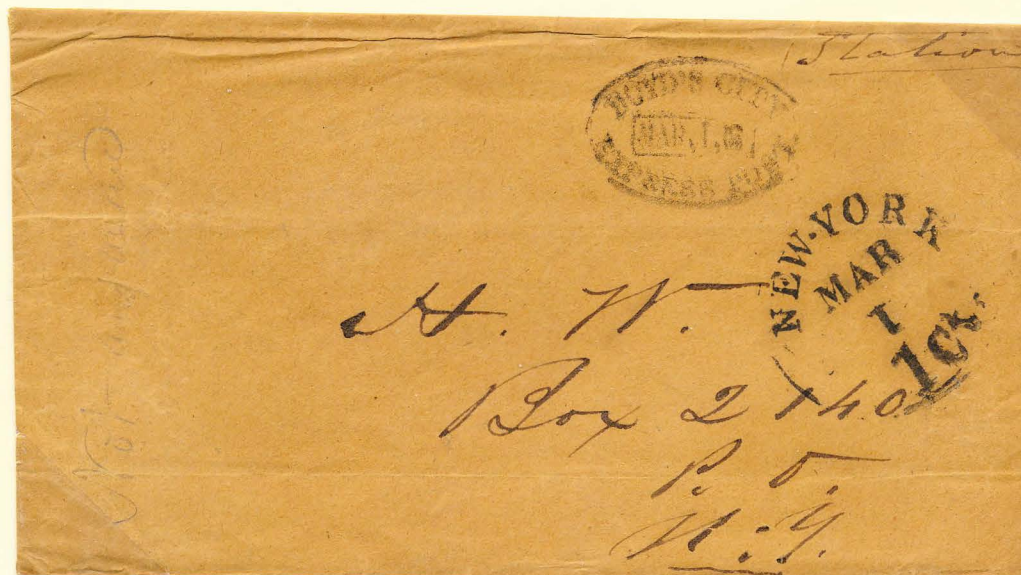 Station
BOYD'S CITY
MAR, 1,
EXPRESS POST
NEW-YORK
MAR
1
1 ct.
H. W.
Box 2140
P. O.
N. Y.